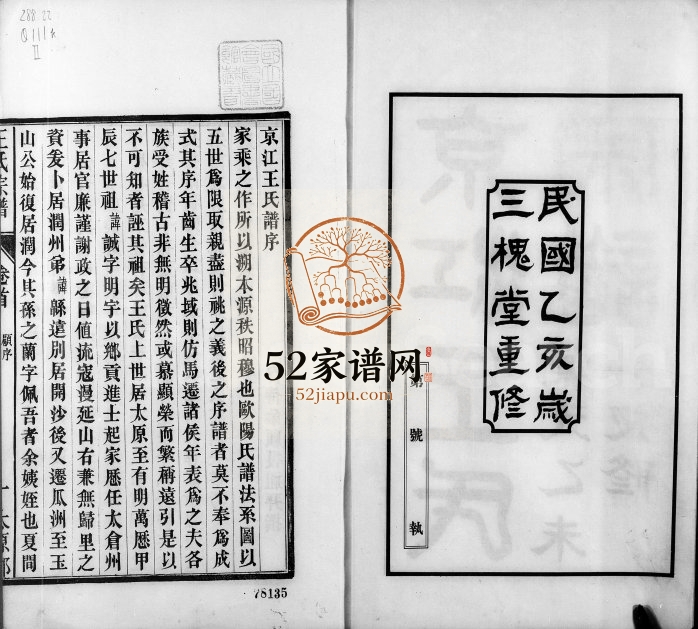 民國乙亥歲
三槐堂重修
號
執
288.22
京江王氏譜序
家乘之作所以溯本源秩昭穆也歐陽氏譜法系圖以
五世為限取親盡則祧之義後之序譜者莫不奉為成
式其序年齒生卒兆域則仿馬遷諸侯年表為之夫各
族受姓稽古非無明徵然或慕顯榮而繁稱遠引是以
不可知者誣其祖矣王氏上世居太原至有明萬曆甲
辰七世祖諱誠字明宇以鄉貢進士起家歷任太倉州
事居官廉謹謝政之日值流寇漫延山右兼無歸里之
資爰卜居潤州弟諱縣遠別居開沙後又遷瓜洲至玉
山公始復居潤今其孫之蘭字佩吾者余姨姪也夏間
王氏宗譜
卷首
顧序
一
太原郡
78135
52家谱网
52jiapu.com